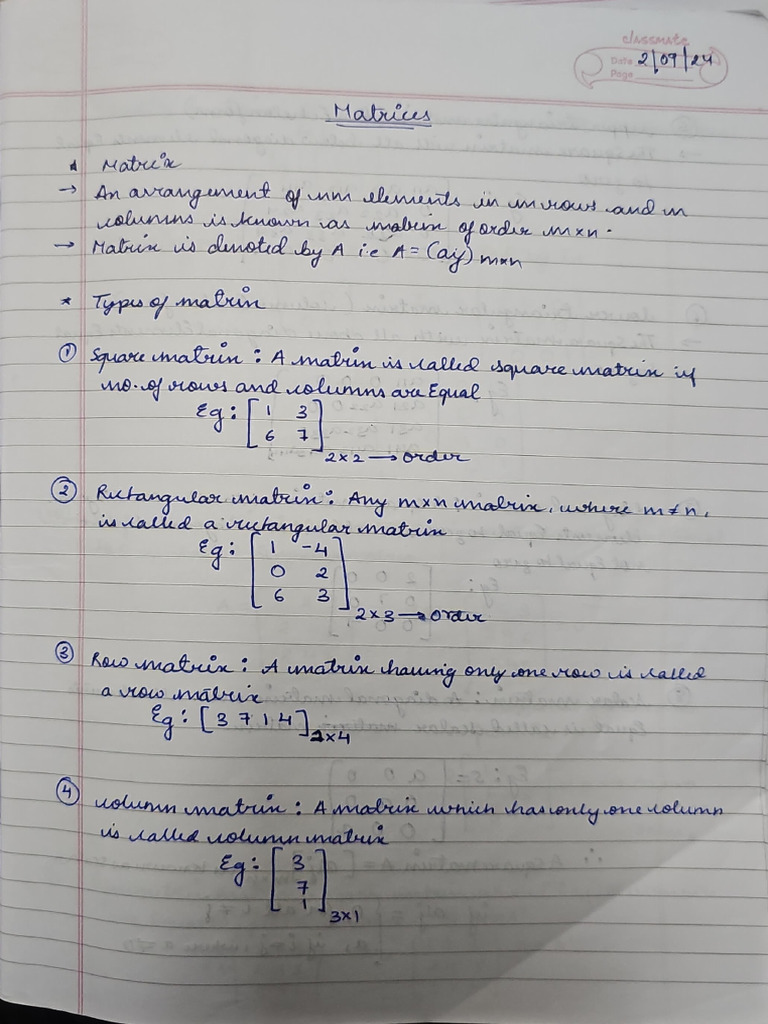 classmate
Date 2/09/24
Page
Matrices
* Matrix
→ An arrangement of mn elements in m rows and n
columns is known as matrix of order m×n.
→ Matrix is denoted by A i.e A = (aij) m×n
* Types of matrix
① Square matrix : A matrix is called square matrix if
no. of rows and columns are Equal
Eg : [ 1 3
6 7 ] 2×2 → order
② Rectangular matrix : Any m×n matrix, where m≠n,
is called a rectangular matrix
Eg : [ 1 -4
0 2
6 3 ] 2×3 → order
③ Row matrix : A matrix having only one row is called
a row matrix
Eg : [ 3 7 1 4 ] ×4
④ column matrix : A matrix which has only one column
is called column matrix
Eg : [ 3
7
1 ] 3×1